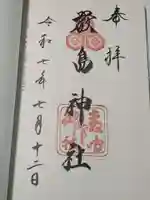 奉拝
嚴島神社
令和七年七月十二日